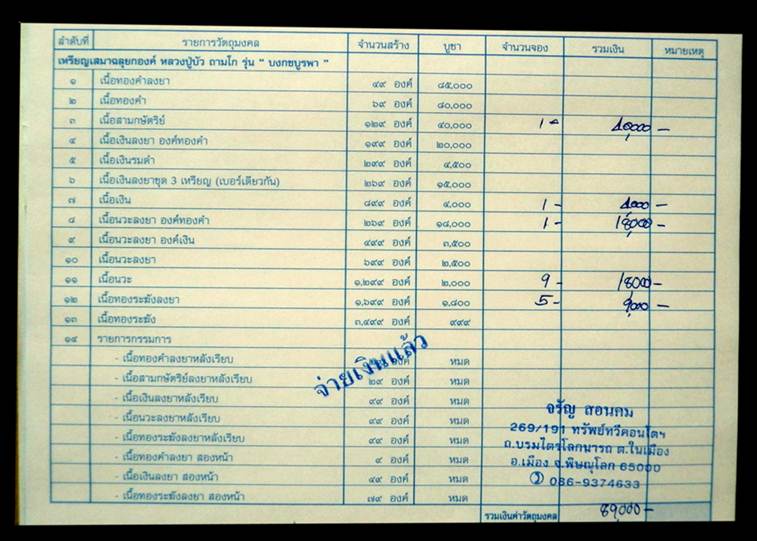 ลำดับที่ รายการวัตถุมงคล จำนวนสร้าง บูชา จำนวนจอง รวมเงิน หมายเหตุ
เหรียญเสมาฉลุยกองค์ หลวงปู่บัว ถามโก รุ่น " บงกชบูรพา "
๑ เนื้อทองคำลงยา ๔๙ องค์ ๘๕,๐๐๐
๒ เนื้อทองคำ ๖๙ องค์ ๘๐,๐๐๐
๓ เนื้อสามกษัตริย์ ๑๒๙ องค์ ๔๐,๐๐๐ 1- 40,000 -
๔ เนื้อเงินลงยา องค์ทองคำ ๑๙๙ องค์ ๒๐,๐๐๐
๕ เนื้อเงินรมดำ ๒๙๙ องค์ ๔,๕๐๐
๖ เนื้อเงินลงยาชุด 3 เหรียญ (เบอร์เดียวกัน) ๒๖๙ องค์ ๑๕,๐๐๐
๗ เนื้อเงิน ๘๙๙ องค์ ๔,๐๐๐ 1- 4000 -
๘ เนื้อนวะลงยา องค์ทองคำ ๒๖๙ องค์ ๑๘,๐๐๐ 1- 18,000 -
๙ เนื้อนวะลงยา องค์เงิน ๔๙๙ องค์ ๓,๕๐๐
๑๐ เนื้อนวะลงยา ๖๙๙ องค์ ๒,๕๐๐
๑๑ เนื้อนวะ ๑,๒๙๙ องค์ ๒,๐๐๐ 9- 18000 -
๑๒ เนื้อทองระฆังลงยา ๑,๖๙๙ องค์ ๑,๘๐๐ 5- 9,000 -
๑๓ เนื้อทองระฆัง ๓,๔๙๙ องค์ ๙๙๙
๑๔ รายการกรรมการ
- เนื้อทองคำลงยาหลังเรียบ องค์ หมด
จ่ายเงินแล้ว
- เนื้อสามกษัตริย์ลงยาหลังเรียบ ๒๙ องค์ หมด
- เนื้อเงินลงยาหลังเรียบ ๙๙ องค์ หมด
- เนื้อนวะลงยาหลังเรียบ ๙๙ องค์ หมด
- เนื้อทองระฆังลงยาหลังเรียบ ๙๙ องค์ หมด
- เนื้อทองคำลงยา สองหน้า ๙ องค์ หมด
- เนื้อเงินลงยา สองหน้า ๔๙ องค์ หมด
- เนื้อทองระฆังลงยา สองหน้า ๗๙ องค์ หมด
จรัญ สอนคม
269/191 ทรัพย์ทวีคอนโดฯ
ถ.บรมไตรโลกนารถ ต.ในเมือง
อ.เมือง จ.พิษณุโลก 65000
086-9374633
รวมเงินค่าวัตถุมงคล 89000 -